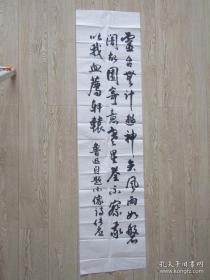 靈台無計逃神矢風雨如磐
闇故園寄意寒星荃不察我
以我血薦軒轅 魯迅自題小像詩